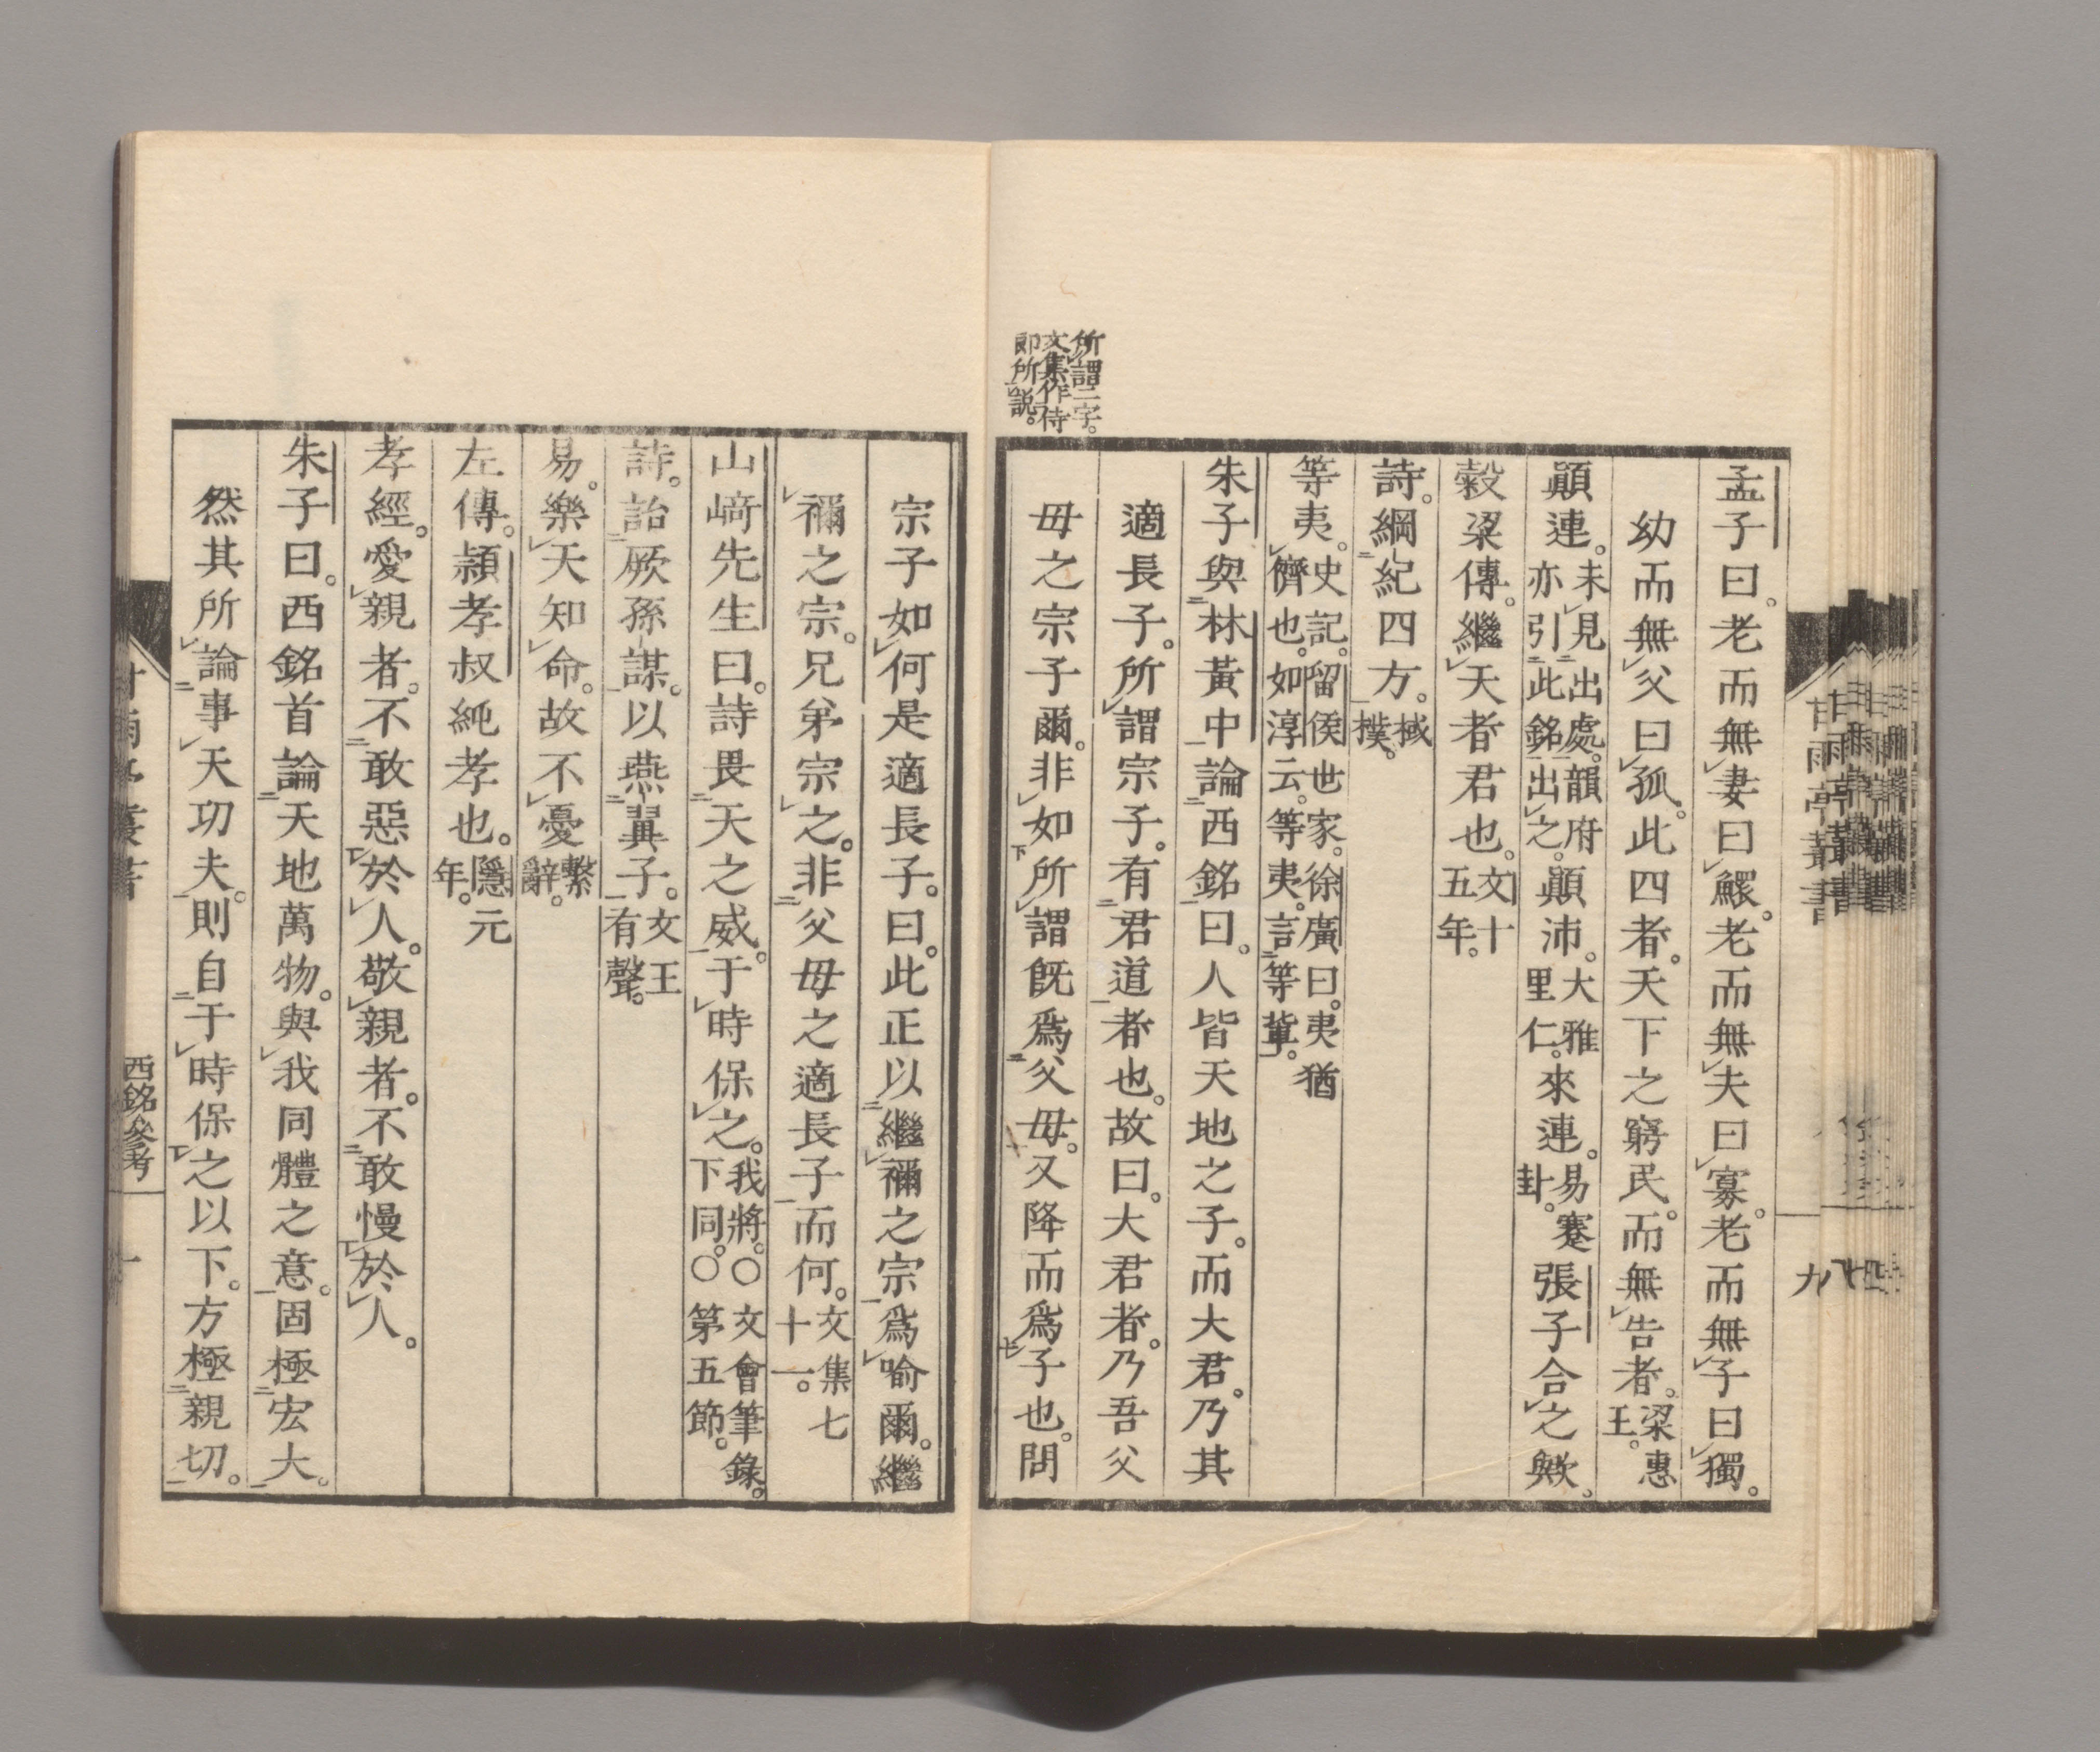 所謂二字。
文集作侍
即所説。
孟子曰。老而無妻曰鰥。老而無夫曰寡。老而無子曰獨。
幼而無父曰孤。此四者。天下之窮民。而無告者。梁惠王。
顚連。未見出處。韻府亦引此銘出之。顚沛。大雅里仁。來連。易蹇卦。張子合之歟。
穀梁傳。繼天者君也。文十五年。
詩。綱紀四方。棫樸。
等夷。史記。留侯世家。徐廣曰。夷猶儕也。如淳云。等夷。言等輩。
朱子與林黃中論西銘曰。人皆天地之子。而大君。乃其
適長子。所謂宗子。有君道者也。故曰。大君者。乃吾父
毋之宗子爾。非如所謂旣爲父毋。又降而爲子也。問
九
甘雨亭叢書
宗子如何是適長子。曰。此正以繼禰之宗爲喻爾。繼
禰之宗。兄弟宗之。非父毋之適長子而何。文集七十一。
山﨑先生曰。詩畏天之威。于時保之。我將。○文會筆錄。下同。○第五節。
詩。詒厥孫謀。以燕翼子。文王有聲。
易。樂天知命。故不憂。繫辭。
左傳。潁孝叔純孝也。隱元年。
孝經。愛親者。不敢惡於人。敬親者。不敢慢於人。
朱子曰。西銘首論天地萬物。與我同體之意。固極宏大。
然其所論事天功夫。則自于時保之以下。方極親切。
西銘參考